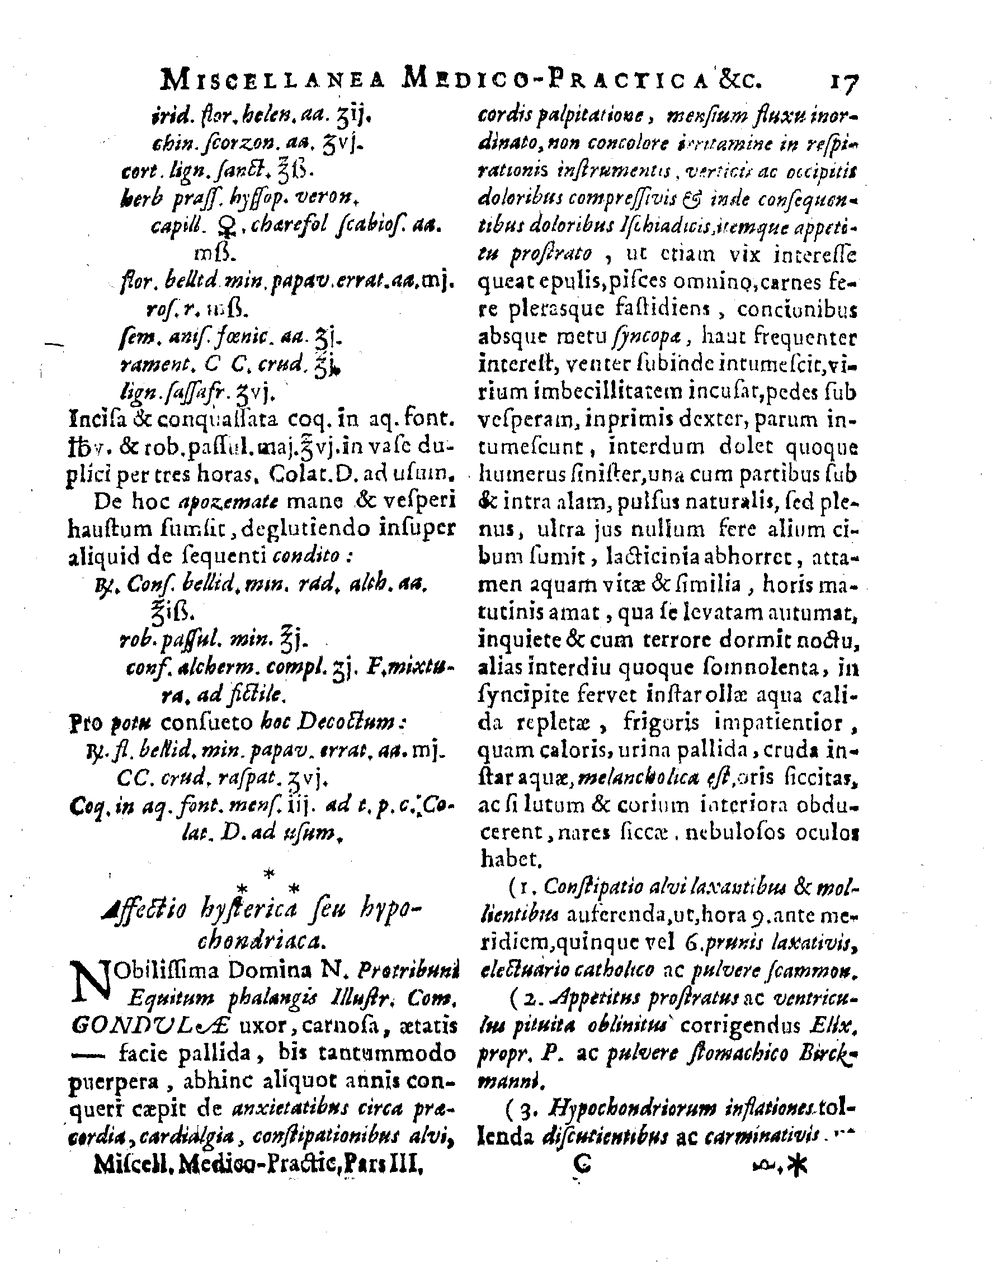 MISCELLANEA MEDICO-PRACTICA &c. 17
irid. flor. helen. aa. ʒij.
chin. ſcorzon. aa. ʒvj.
cort. lign. ſanct. ℥ß.
herb praſſ. hyſſop. veron.
capill. ♀. chærefol ſcabioſ. aa.
mß.
flor. bellid min. papav. errat. aa. mj.
roſ. r. mß.
ſem. aniſ. fœnic. aa. ʒj.
rament. C C. crud. ℥j.
lign. ſaſſafr. ʒvj.
Inciſa & conquaſſata coq. in aq. font.
℔v. & rob. paſſul. maj. ℥vj. in vaſe du-
plici per tres horas. Colat. D. ad uſum.
De hoc apozemate mane & veſperi
hauſtum ſumſit, deglutiendo inſuper
aliquid de ſequenti condito:
℞. Conſ. bellid. min. rad. alth. aa.
℥iß.
rob. paſſul. min. ℥j.
conf. alcherm. compl. ʒj. F. mixtu-
ra. ad fictile.
Pro potu conſueto hoc Decoctum:
℞. fl. bellid. min. papav. errat. aa. mj.
CC. crud. raſpat. ʒvj.
Coq. in aq. font. menſ. iij. ad t. p. c. Co-
lat. D. ad uſum.
*
* *
Affectio hyſterica ſeu hypo-
chondriaca.
NObiliſſima Domina N. Protribuni
Equitum phalangis Illuſtr. Com.
GONDULÆ uxor, carnoſa, ætatis
— facie pallida, bis tantummodo
puerpera, abhinc aliquot annis con-
queri cæpit de anxietatibus circa præ-
cordia, cardialgia, conſtipationibus alvi,
Miſcell. Medico-Practic, Pars III.
cordis palpitatione, menſium fluxu inor-
dinato, non concolore irritamine in reſpi-
rationis inſtrumentis, verticis ac occipitis
doloribus compreſſivis & inde conſequen-
tibus doloribus Iſchiadicis, itemque appeti-
tu proſtrato, ut etiam vix intereſſe
queat epulis, piſces omnino, carnes fe-
re plerasque faſtidiens, concionibus
absque metu ſyncopæ, haut frequenter
intereſt, venter ſubinde intumeſcit, vi-
rium imbecillitatem incuſat, pedes ſub
veſperam, inprimis dexter, parum in-
tumeſcunt, interdum dolet quoque
humerus ſiniſter, una cum partibus ſub
& intra alam, pulſus naturalis, ſed ple-
nus, ultra jus nullum fere alium ci-
bum ſumit, lacticinia abhorret, atta-
men aquam vitæ & ſimilia, horis ma-
tutinis amat, qua ſe levatam autumat,
inquiete & cum terrore dormit noctu,
alias interdiu quoque ſomnolenta, in
ſyncipite fervet inſtar ollæ aqua cali-
da repletæ, frigoris impatientior,
quam caloris, urina pallida, cruda in-
ſtar aquæ, melancholica eſt, oris ſiccitas,
ac ſi lutum & corium interiora obdu-
cerent, nares ſiccæ, nebuloſos oculos
habet.
(1. Conſtipatio alvi laxantibus & mol-
lientibus auferenda, ut, hora 9. ante me-
ridiem, quinque vel 6. prunis laxativis,
electuario catholico ac pulvere ſcammon.
(2. Appetitus proſtratus ac ventricu-
lus pituita oblinitus corrigendus Elix.
propr. P. ac pulvere ſtomachico Birck-
manni.
(3. Hypochondriorum inflationes tol-
lenda diſcutientibus ac carminativis.
C